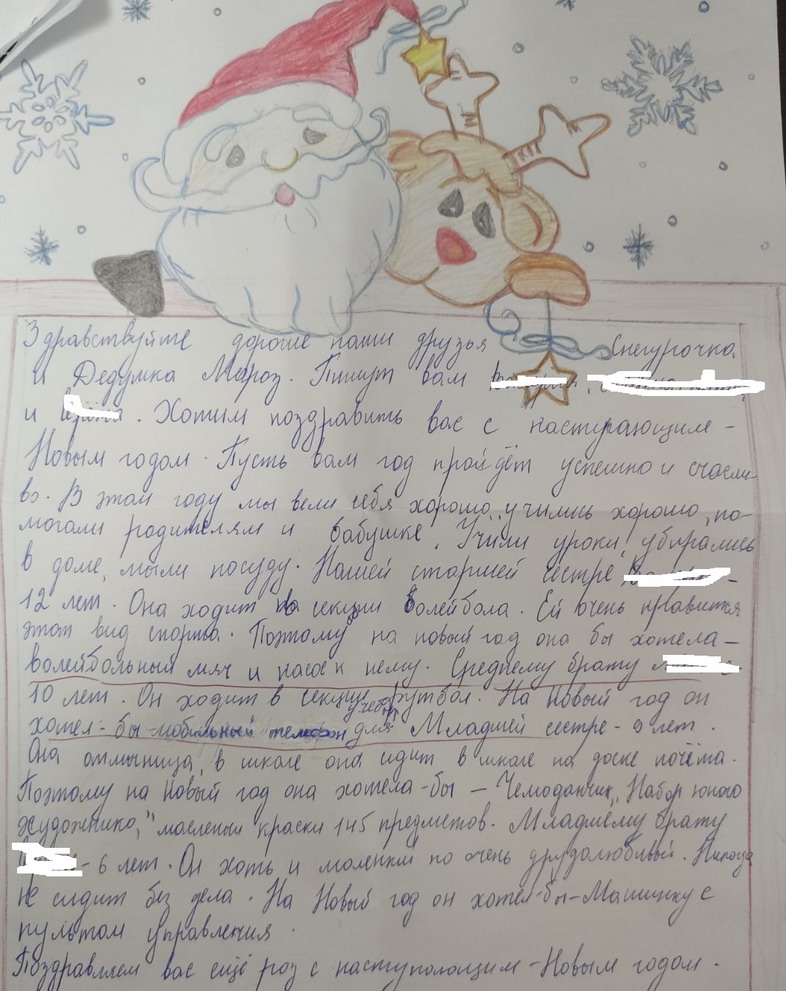 Здравствуйте дорогие наши друзья Снегурочка
и Дедушка Мороз. Пишут вам
и . Хотим поздравить вас с наступающим-
Новым годом. Пусть вам год пройдёт успешно и счасли
во. В этом году мы вели себя хорошо, учились хорошо, по-
могали родителям и бабушке. Учили уроки, убирались
в доме, мыли посуду. Нашей старшей сестре -
12 лет. Она ходит на секции волейбола. Ей очень нравится
этот вид спорта. Поэтому на новый год она бы хотела-
волейбольный мяч и насос к нему. Среднему брату
10 лет. Он ходит в секцию футбол. На новый год он
хотел-бы мобильный телефон для учёбы Младшей сестре-9 лет.
Она отличница, в школе она сидит в школе на доске почёта.
Поэтому на новый год она хотела-бы - Чемоданчик, "Набор юного
художнико," масленые краски 145 предметов. Младшему брату
-6 лет. Он хоть и маленкй но очень друдолюбивый. Никогда
не сидит без дела. На Новый год он хотел-бы-Машинку с
пультом управления.
Поздравляем вас ещё роз с наступающим-Новым годом.